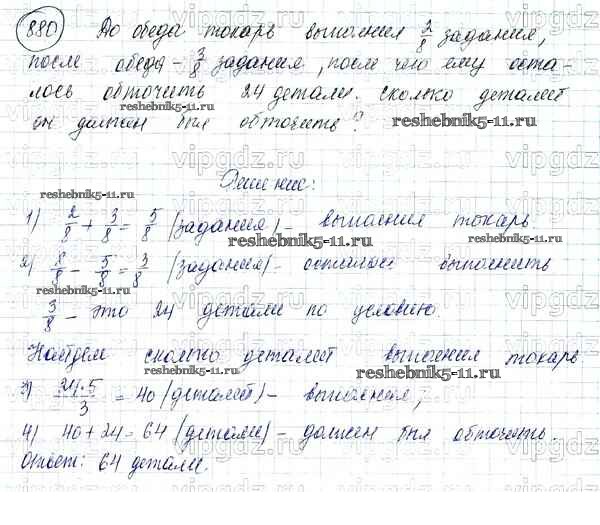 880 До обеда токарь выполнил 2/8 задания,
после обеда - 3/8 задания, после чего ему оста-
лось обточить 24 детали. сколько деталей
он должен был обточить? reshebnik5-11.ru
Решение:
reshebnik5-11.ru
1) 2/8 + 3/8 = 5/8 (задания) - выполнил токарь
reshebnik5-11.ru
2) 8/8 - 5/8 = 3/8 (задания) - осталось выполнить
reshebnik5-11.ru
3/8 - это 24 детали по условию.
Найдем сколько деталей выполнил токарь
reshebnik5-11.ru
3) 24·5/3 = 40 (деталей) - выполнил,
reshebnik5-11.ru
4) 40+24=64 (детали) - должен был обточить.
Ответ: 64 детали.
vipgdz.ru